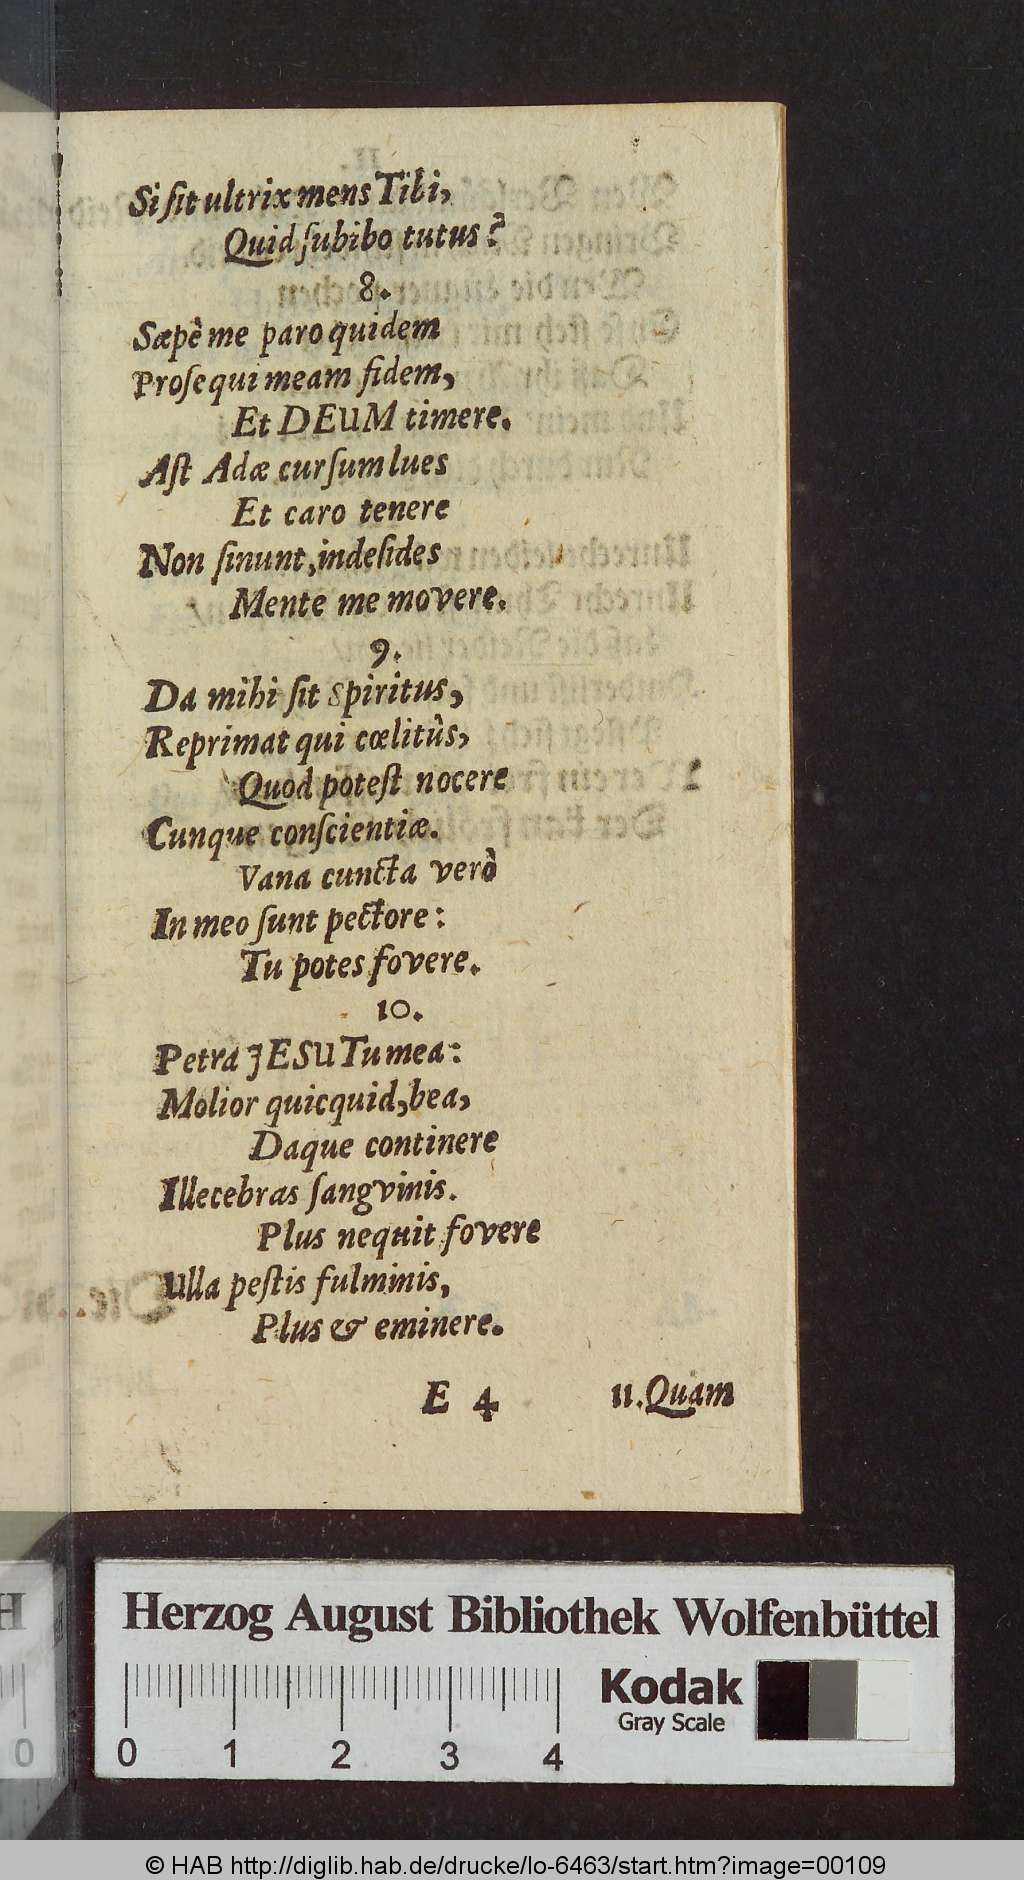 Si ſit ultrix mens Tibi,
Quid ſubibo tutus?
8.
Sæpè me paro quidem
Proſequi meam fidem,
Et DEUM timere.
Aſt Adæ curſum lues
Et caro tenere
Non ſinunt, indeſides
Mente me movere.
9.
Da mihi ſit Spiritus,
Reprimat qui cœlitùs,
Quod poteſt nocere
Cunque conſcientiæ.
Vana cuncta verò
In meo ſunt pectore:
Tu potes fovere.
10.
Petra JESU Tu mea:
Molior quicquid, bea,
Daque continere
Illecebras ſangvinis.
Plus nequit fovere
Ulla peſtis fulminis,
Plus & eminere.
E 4 11. Quam
Herzog August Bibliothek Wolfenbüttel
Kodak
Gray Scale
0 1 2 3 4
© HAB http://diglib.hab.de/drucke/lo-6463/start.htm?image=00109